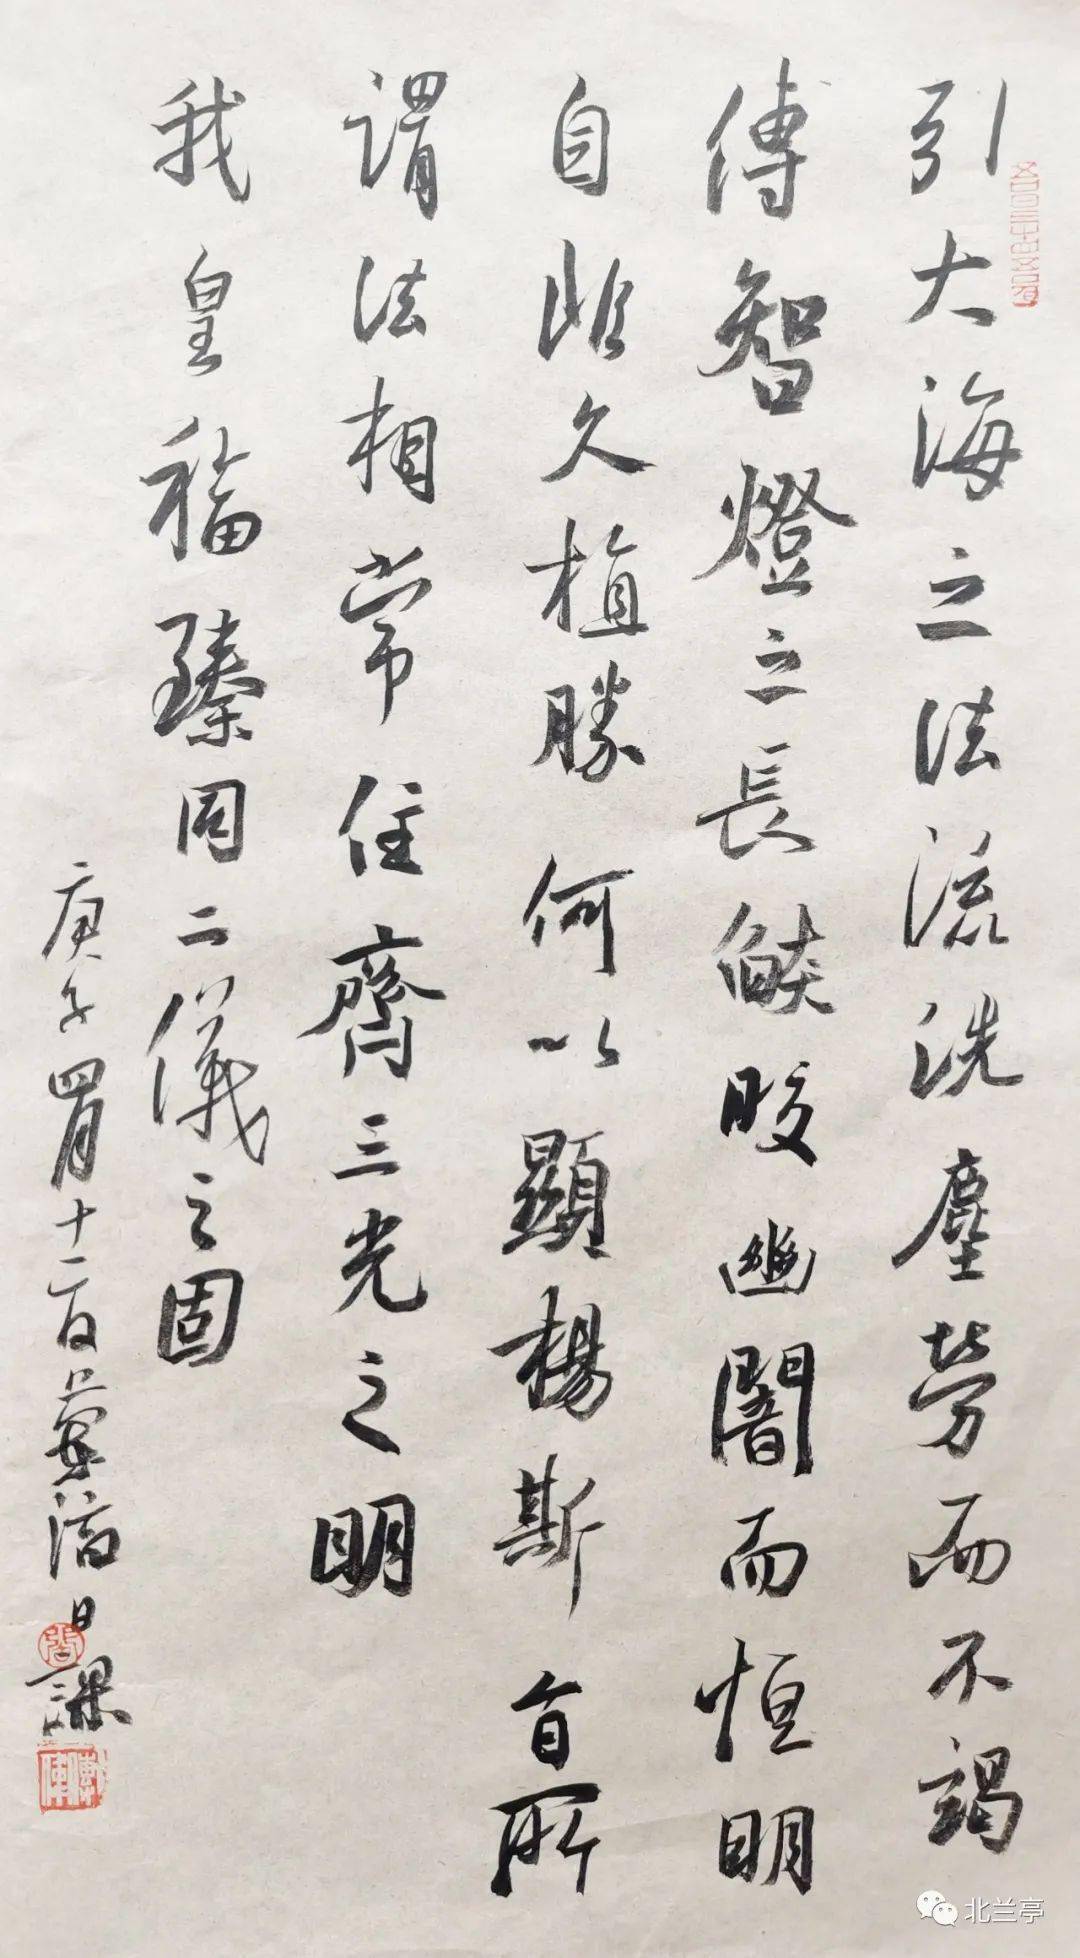 引大海之法流洗塵勞而不竭
傳智燈之長焰皎幽闇而恒明
自非久植勝何以顯楊斯旨所
謂法相常住齊三光之明
我皇福臻同二儀之固
庚子四月十二日夜 日課
北兰亭